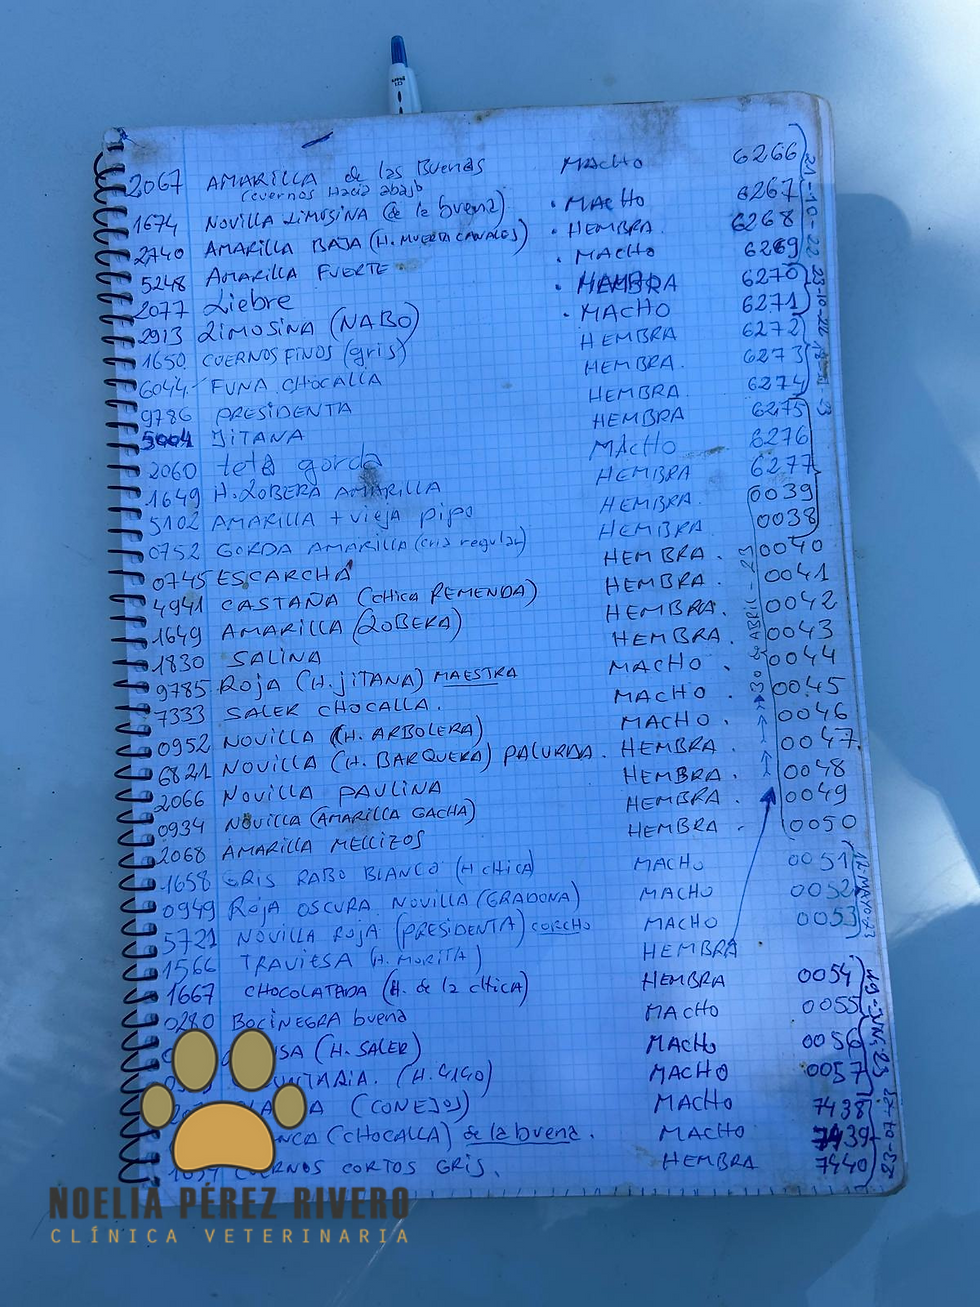 2067 AMARILLA de las Buenas MACHO 6266
(cuernos Hacia abajo)
1674 NOVILLA LIMOSINA (de la buena) · MACHO 6267
2740 AMARILLA BAJA (H. MUERTA CANALOS) · HEMBRA. 6268
5248 AMARILLA FUERTE · MACHO 6269
2077 Liebre · HEMBRA 6270
2913 LIMOSINA (NABO) · MACHO 6271
1650 CUERNOS FINOS (gris) HEMBRA 6272
6044 FUNA CHOCALLA HEMBRA. 6273
9786 PRESIDENTA HEMBRA 6274
5004 JITANA HEMBRA 6275
2060 teta gorda MACHO 6276
1649 H. LOBERA AMARILLA HEMBRA 6277
5102 AMARILLA + vieja pipo HEMBRA. 0039
0752 GORDA AMARILLA (cris regular) HEMBRA 0038
0745 ESCARCHA HEMBRA. 0040
4941 CASTAÑA (CHica REMENDA) HEMBRA. 0041
1649 AMARILLA (LOBERA) HEMBRA. 0042
1830 SALINA HEMBRA. 0043
9785 ROJA (H. JITANA) MAESTRA MACHO. 0044
7333 SALER CHOCALLA. MACHO. 0045
0952 NOVILLA (H. ARBOLERA) MACHO. 0046
6821 NOVILLA (H. BARQUERA) PALURDA. HEMBRA. 0047
2066 NOVILLA PAULINA HEMBRA. 0048
0934 NOVILLA (AMARILLA GACHA) HEMBRA. 0049
2068 AMARILLA MELLIZOS HEMBRA. 0050
1658 GRIS RABO BLANCO (H CHICA) MACHO 0051
0949 ROJA OSCURA NOVILLA (GRADONA) MACHO 0052
5721 NOVILLA ROJA (PRESIDENTA) CORCHO MACHO 0053
1566 TRAVIESA (H. MORITA) HEMBRA
1667 CHOCOLATADA (H. de la CHICA) HEMBRA 0054
0280 BOCINEGRA buena MACHO 0055
SA (H. SALER) MACHO 0056
UNTARIA. (H. 4140) MACHO 0057
(CONEJOS) MACHO 7438
NCA (CHOCALLA) de la buena. MACHO 7439
CUERNOS CORTOS GRIS. HEMBRA 7440
21-10-22
23-10-22
30 ABRIL-23
12-MAYO-23
19-JUN-23
23-07-23
NOELIA PÉREZ RIVERO
CLÍNICA VETERINARIA